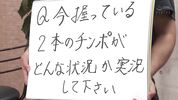 Q今握っている
2本のチンポが
どんな状況か実況
して下さい